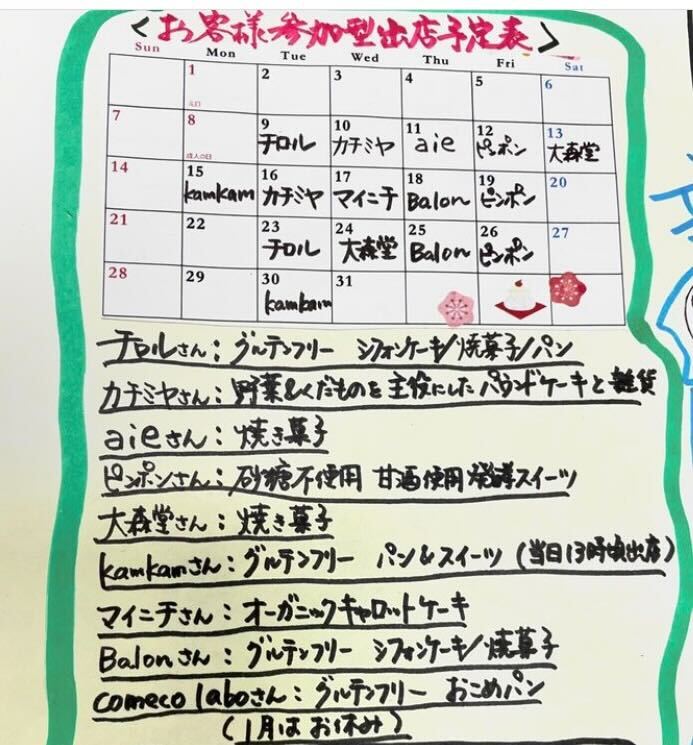 <お客様参加型出店予定表>
Sun Mon Tue Wed Thu Fri Sat
1 2 3 4 5 6
元日
7 8 9 10 11 12 13
成人の日 チロル カチミヤ aie ピンポン 大森堂
14 15 16 17 18 19 20
kamkam カチミヤ マイニチ Balon ピンポン
21 22 23 24 25 26 27
チロル 大森堂 Balon ピンポン
28 29 30 31
kamkam
チロルさん:グルテンフリー シフォンケーキ/焼菓子/パン
カチミヤさん:野菜&くだものを主役にしたパウンドケーキと雑貨
aieさん:焼き菓子
ピンポンさん:砂糖不使用 甘酒使用発酵スイーツ
大森堂さん:焼き菓子
kamkamさん:グルテンフリー パン&スイーツ(当日13時頃出店)
マイニチさん:オーガニックキャロットケーキ
Balonさん:グルテンフリー シフォンケーキ/焼菓子
comeco laboさん:グルテンフリー おこめパン
(1月はお休み)